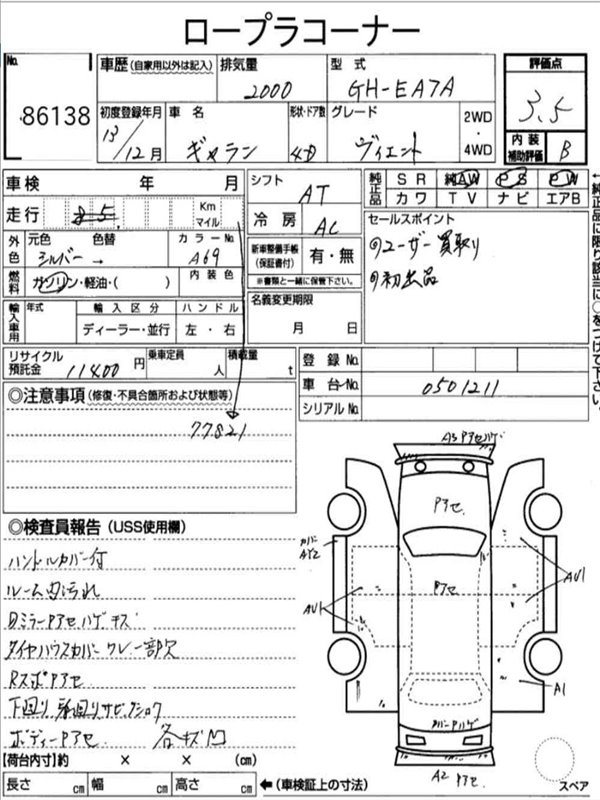 ロープラコーナー
No. 86138
車歴 (自家用以外は記入)
排気量 2000
型式 GH-EA7A
評価点 3.5
内装補助評価 B
初度登録年月 13/12月
車名 ギャラン
形状・ドア数 4D
グレード ヴィエント
2WD・4WD
車検 年 月
シフト AT
純正品 SR 純AW PS PW
カワ TV ナビ エアB
走行 85 Km マイル
冷房 AC
セールスポイント
①ユーザー買取り
①初出品
外色 元色 色替 カラーNo.
シルバー → A69
新車整備手帳(保証書付) 有・無
※書類と一緒に保管下さい。
燃料 ガソリン・軽油・( ) 内装色
名義変更期限
月 日
輸入車用 年式 輸入区分 ハンドル
ディーラー・並行 左・右
リサイクル預託金 11400円 乗車定員 人 積載量 t
登録No.
車台No. 0501211
シリアルNo.
◎注意事項(修復・不具合箇所および状態等)
77821
◎検査員報告(USS使用欄)
ハンドルカバー付
ルーム内汚れ
Dミラーアセハゲキズ
タイヤハウスカバークレー部欠
RスポPアセ
下回り
ボディーPアセ 各キズ凹
A3 Pアセハゲ
Pアセ
カバーAY2
Pアセ
AU1
AU1
A1
カバーPハゲ
A2 Pアセ
スペア
【荷台内寸】約 × × (cm)
長さ cm 幅 cm 高さ cm ←(車検証上の寸法)
↑純正品に限り該当に○をつけて下さい。